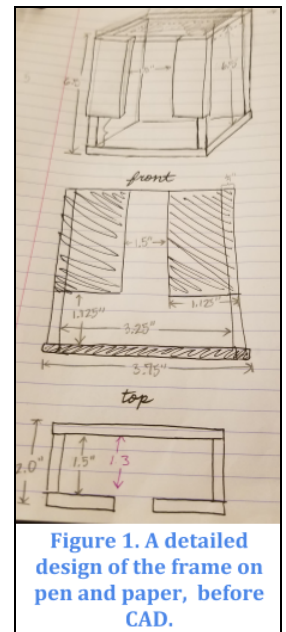 1.5"
front
1.5"
1.125"
1.125"
3.25"
3.95"
top
2.0"
1.5"
1.3
Figure 1. A detailed
design of the frame on
pen and paper, before
CAD.